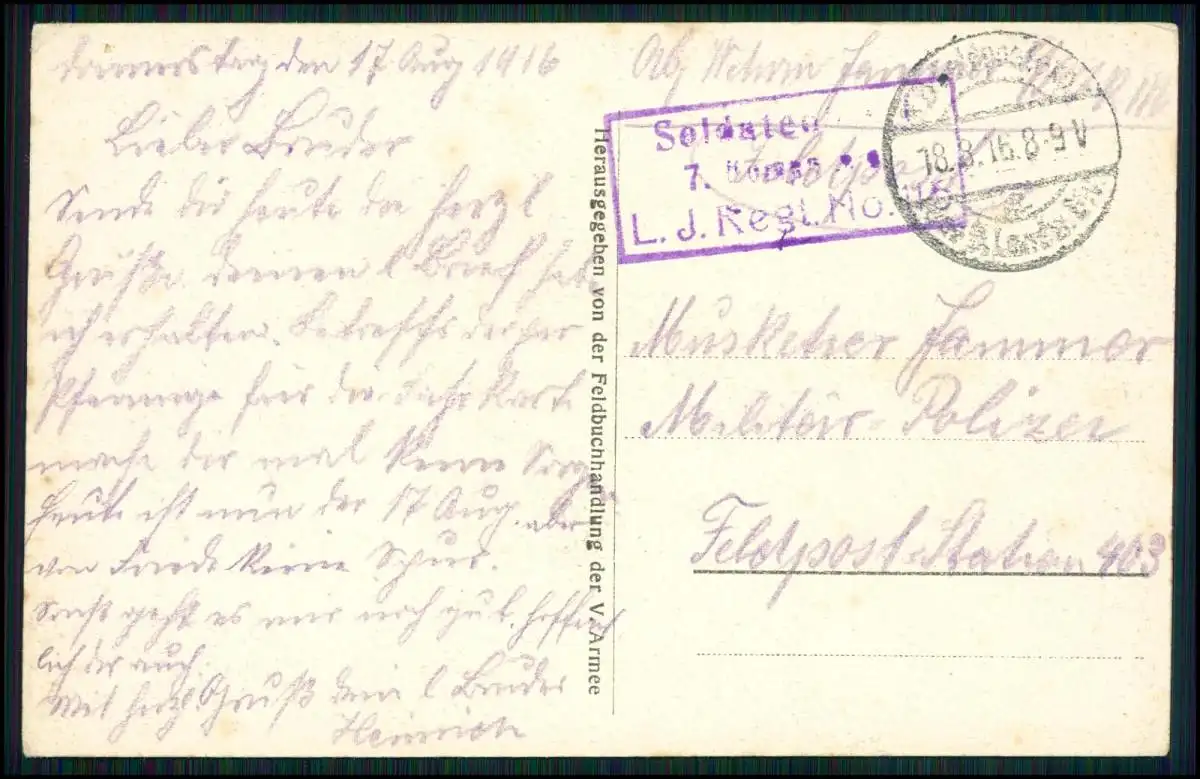 Donnerstag den 17 Aug 1916
Lieber Bruder
Sende dir heute die herzl
Grüße deinen l Brief hab
ich erhalten. Betreffs der
Pfennige für die Karte
mache dir mal keine Sorge
heute ist nun der 17 Aug. aber
von Friede keine Spur.
Sonst geht es mir noch gut, hoffent
lich dir auch.
Mit herzl. Gruß dein l Bruder
Heinrich
Herausgegeben von der Feldbuchhandlung der V. Armee
Abs Wehrm
Feldpost
Soldaten
7. Komp
L. J. Regt. No.
18.8.16. 8-9 V
Musketier Jammer
Militär-Polizei
Feldpost-Station 403